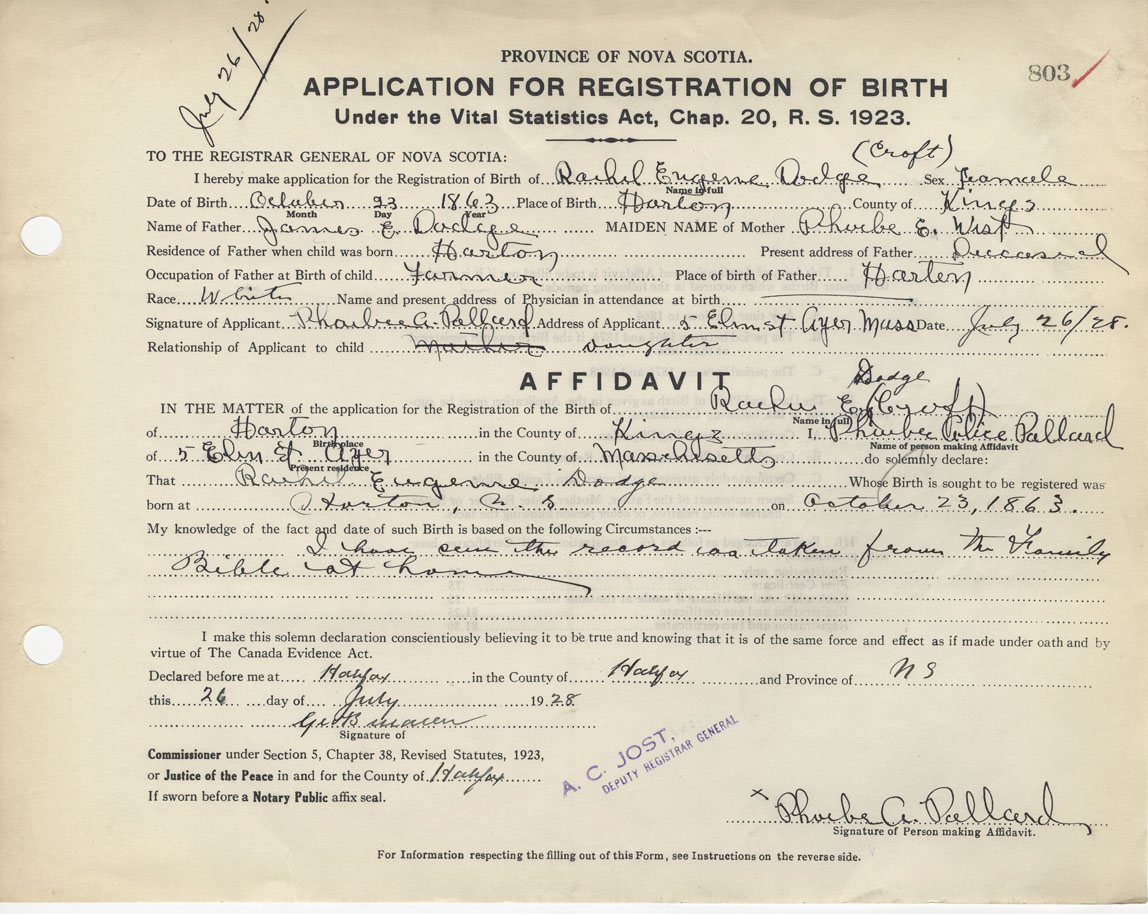 July 26/28.
PROVINCE OF NOVA SCOTIA.
803
APPLICATION FOR REGISTRATION OF BIRTH
Under the Vital Statistics Act, Chap. 20, R. S. 1923.
(Croft)
TO THE REGISTRAR GENERAL OF NOVA SCOTIA:
I hereby make application for the Registration of Birth of Rachel Eugene Dodge Sex Feamele
Name in full
Date of Birth October 23 1863 Place of Birth Horton County of Kings
Month Day Year
Name of Father James E. Dodge MAIDEN NAME of Mother Phoebe E. West
Residence of Father when child was born Horton Present address of Father Deceased
Occupation of Father at Birth of child Farmer Place of birth of Father Horton
Race White Name and present address of Physician in attendance at birth
Signature of Applicant Phoebe A. Pallard Address of Applicant 5 Elm st Ayer Mass Date July 26/28.
Relationship of Applicant to child Mother Daughter
AFFIDAVIT
Dodge
IN THE MATTER of the application for the Registration of the Birth of Rachel E. (Croft)
Name in full
of Horton in the County of Kings I, Phoebe Alice Pallard
Birth place Name of person making Affidavit
of 5 Elm St Ayer in the County of Massachusetts do solemnly declare:
Present residence
That Rachel Eugene Dodge Whose Birth is sought to be registered was
born at Horton, N. S on October 23, 1863.
My knowledge of the fact and date of such Birth is based on the following Circumstances :---
I have seen the record as taken from the Family
Bible at home
I make this solemn declaration conscientiously believing it to be true and knowing that it is of the same force and effect as if made under oath and by
virtue of The Canada Evidence Act.
Declared before me at Halifax in the County of Halifax and Province of N S
this 26 day of July 1928
Signature of
A. C. JOST,
DEPUTY REGISTRAR GENERAL
Commissioner under Section 5, Chapter 38, Revised Statutes, 1923,
or Justice of the Peace in and for the County of Halifax
If sworn before a Notary Public affix seal.
x Phoebe A. Pallard
Signature of Person making Affidavit.
For Information respecting the filling out of this Form, see Instructions on the reverse side.